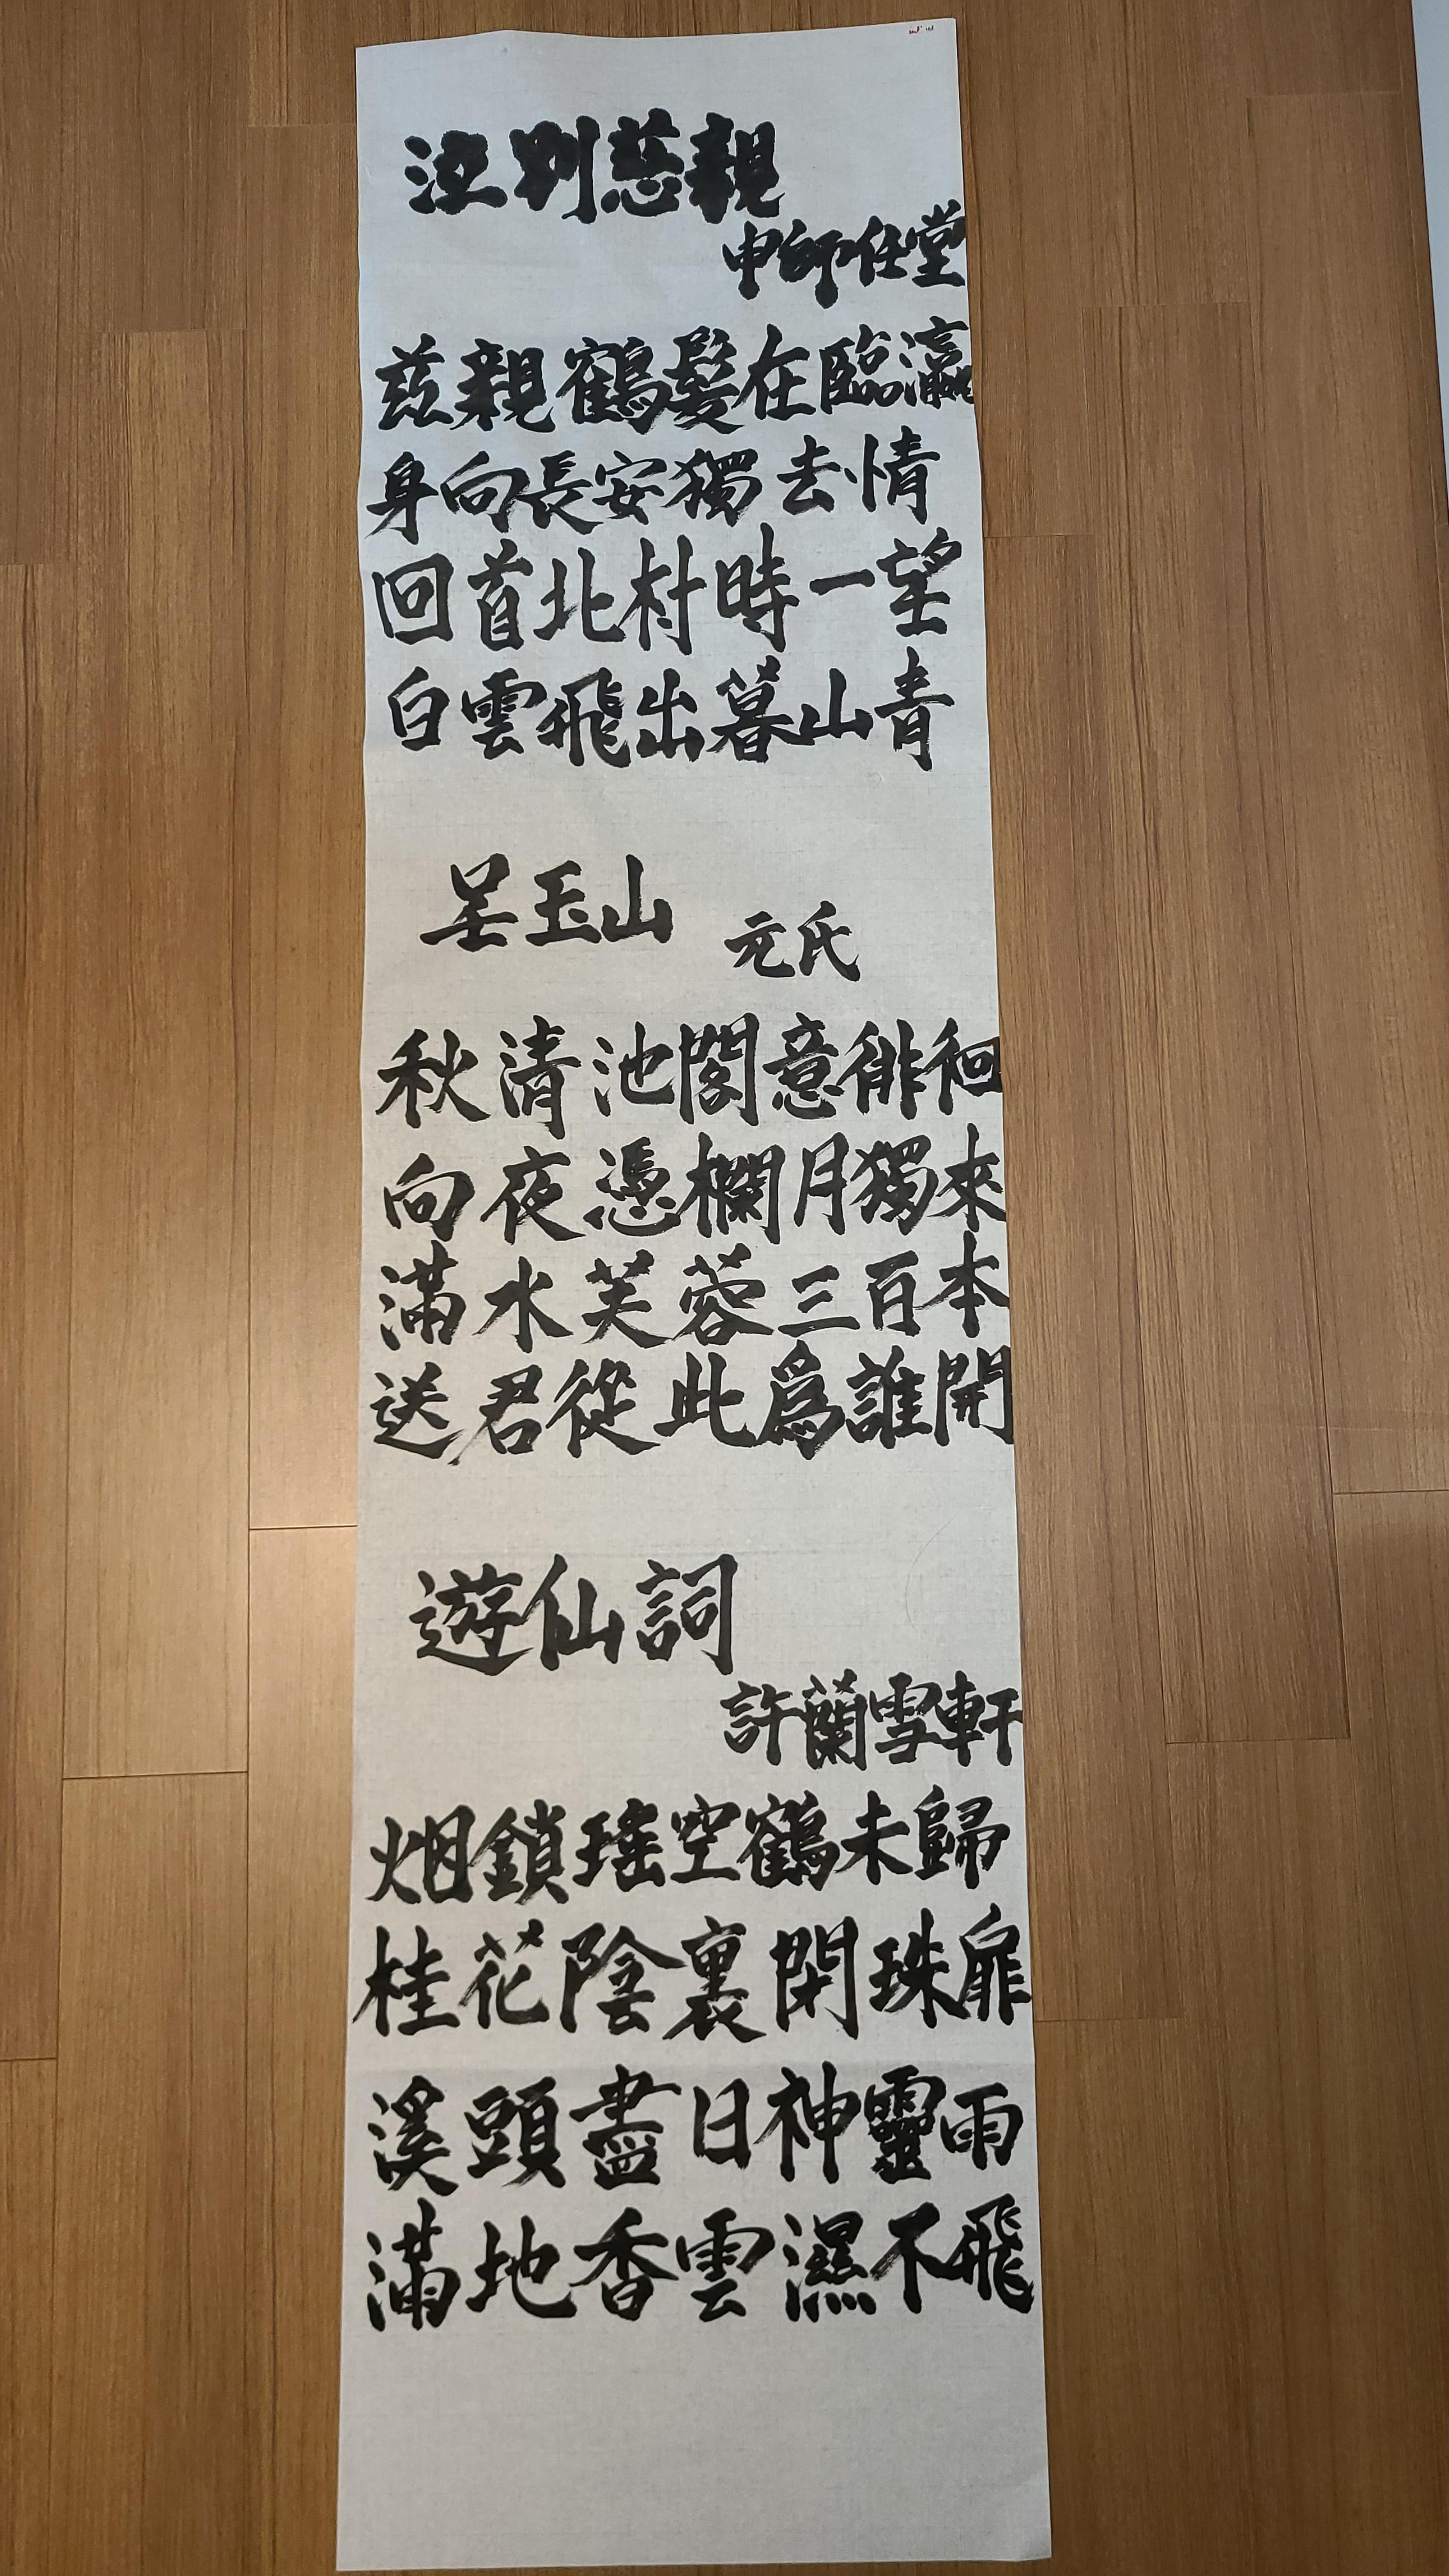 泣別慈親
申師任堂
茲親鶴髮在臨瀛
身向長安獨去情
回首北村時一望
白雲飛出暮山青
呈玉山 元氏
秋清池閣意徘徊
向夜憑欄月獨來
滿水芙蓉三百本
送君從此爲誰開
遊仙詞
許蘭雪軒
烟鎖瑤空鶴未歸
桂花陰裏閉珠扉
溪頭盡日神靈雨
滿地香雲濕不飛